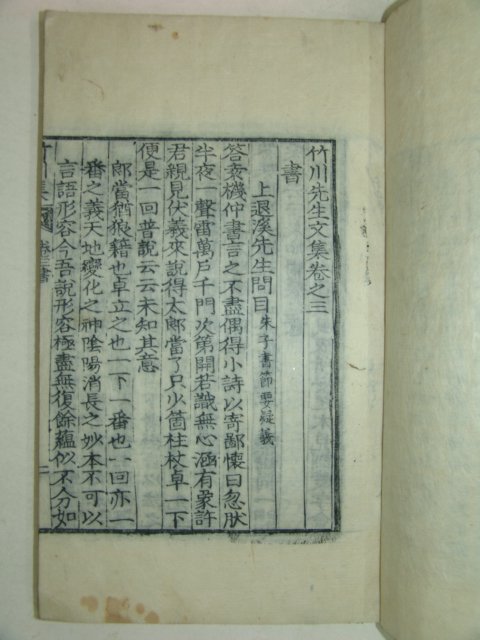 竹川先生文集卷之三
書
上退溪先生問目朱子書節要疑義
答袁機仲書言之不盡偶得小詩以寄鄙懷曰忽然
半夜一聲雷萬戶千門次第開若識無心涵有象許
君親見伏羲來說得太郎當了只少箇柱杖卓一下
便是一回普說云云未知其意
郎當猶狼藉也卓立之也一下一番也一回亦一
番之義天地變化之神陰陽消長之妙本不可以
言語形容今吾說形容極盡無復餘蘊似不分如
竹川集 卷三書